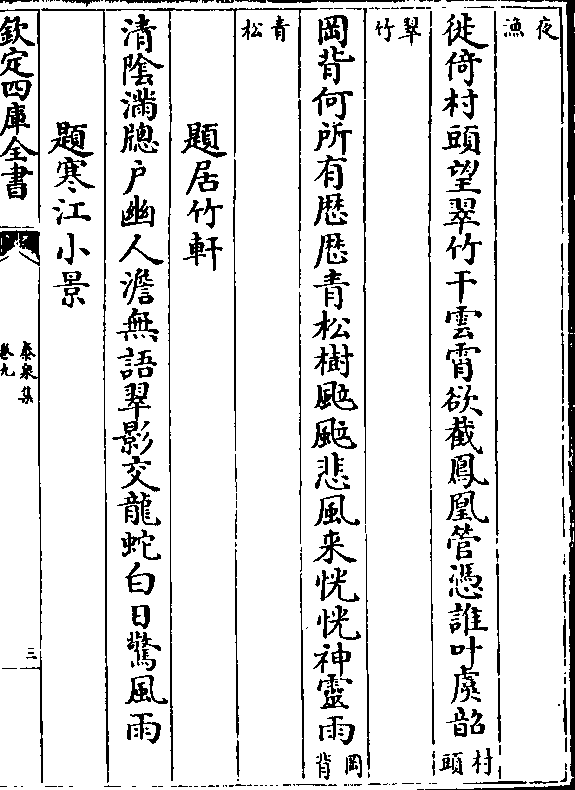 夜漁
徙倚村頭望翠竹干雲霄欲截鳳凰管憑誰叶虞韶村頭
翠竹
岡背何所有歴歴青松樹颯颯悲風来恍恍神靈雨岡背
青松
題居竹軒
清陰滿牕户幽人澹無語翠影交龍蛇白日驚風雨
題寒江小景
欽定四庫全書
泰泉集
卷九
三